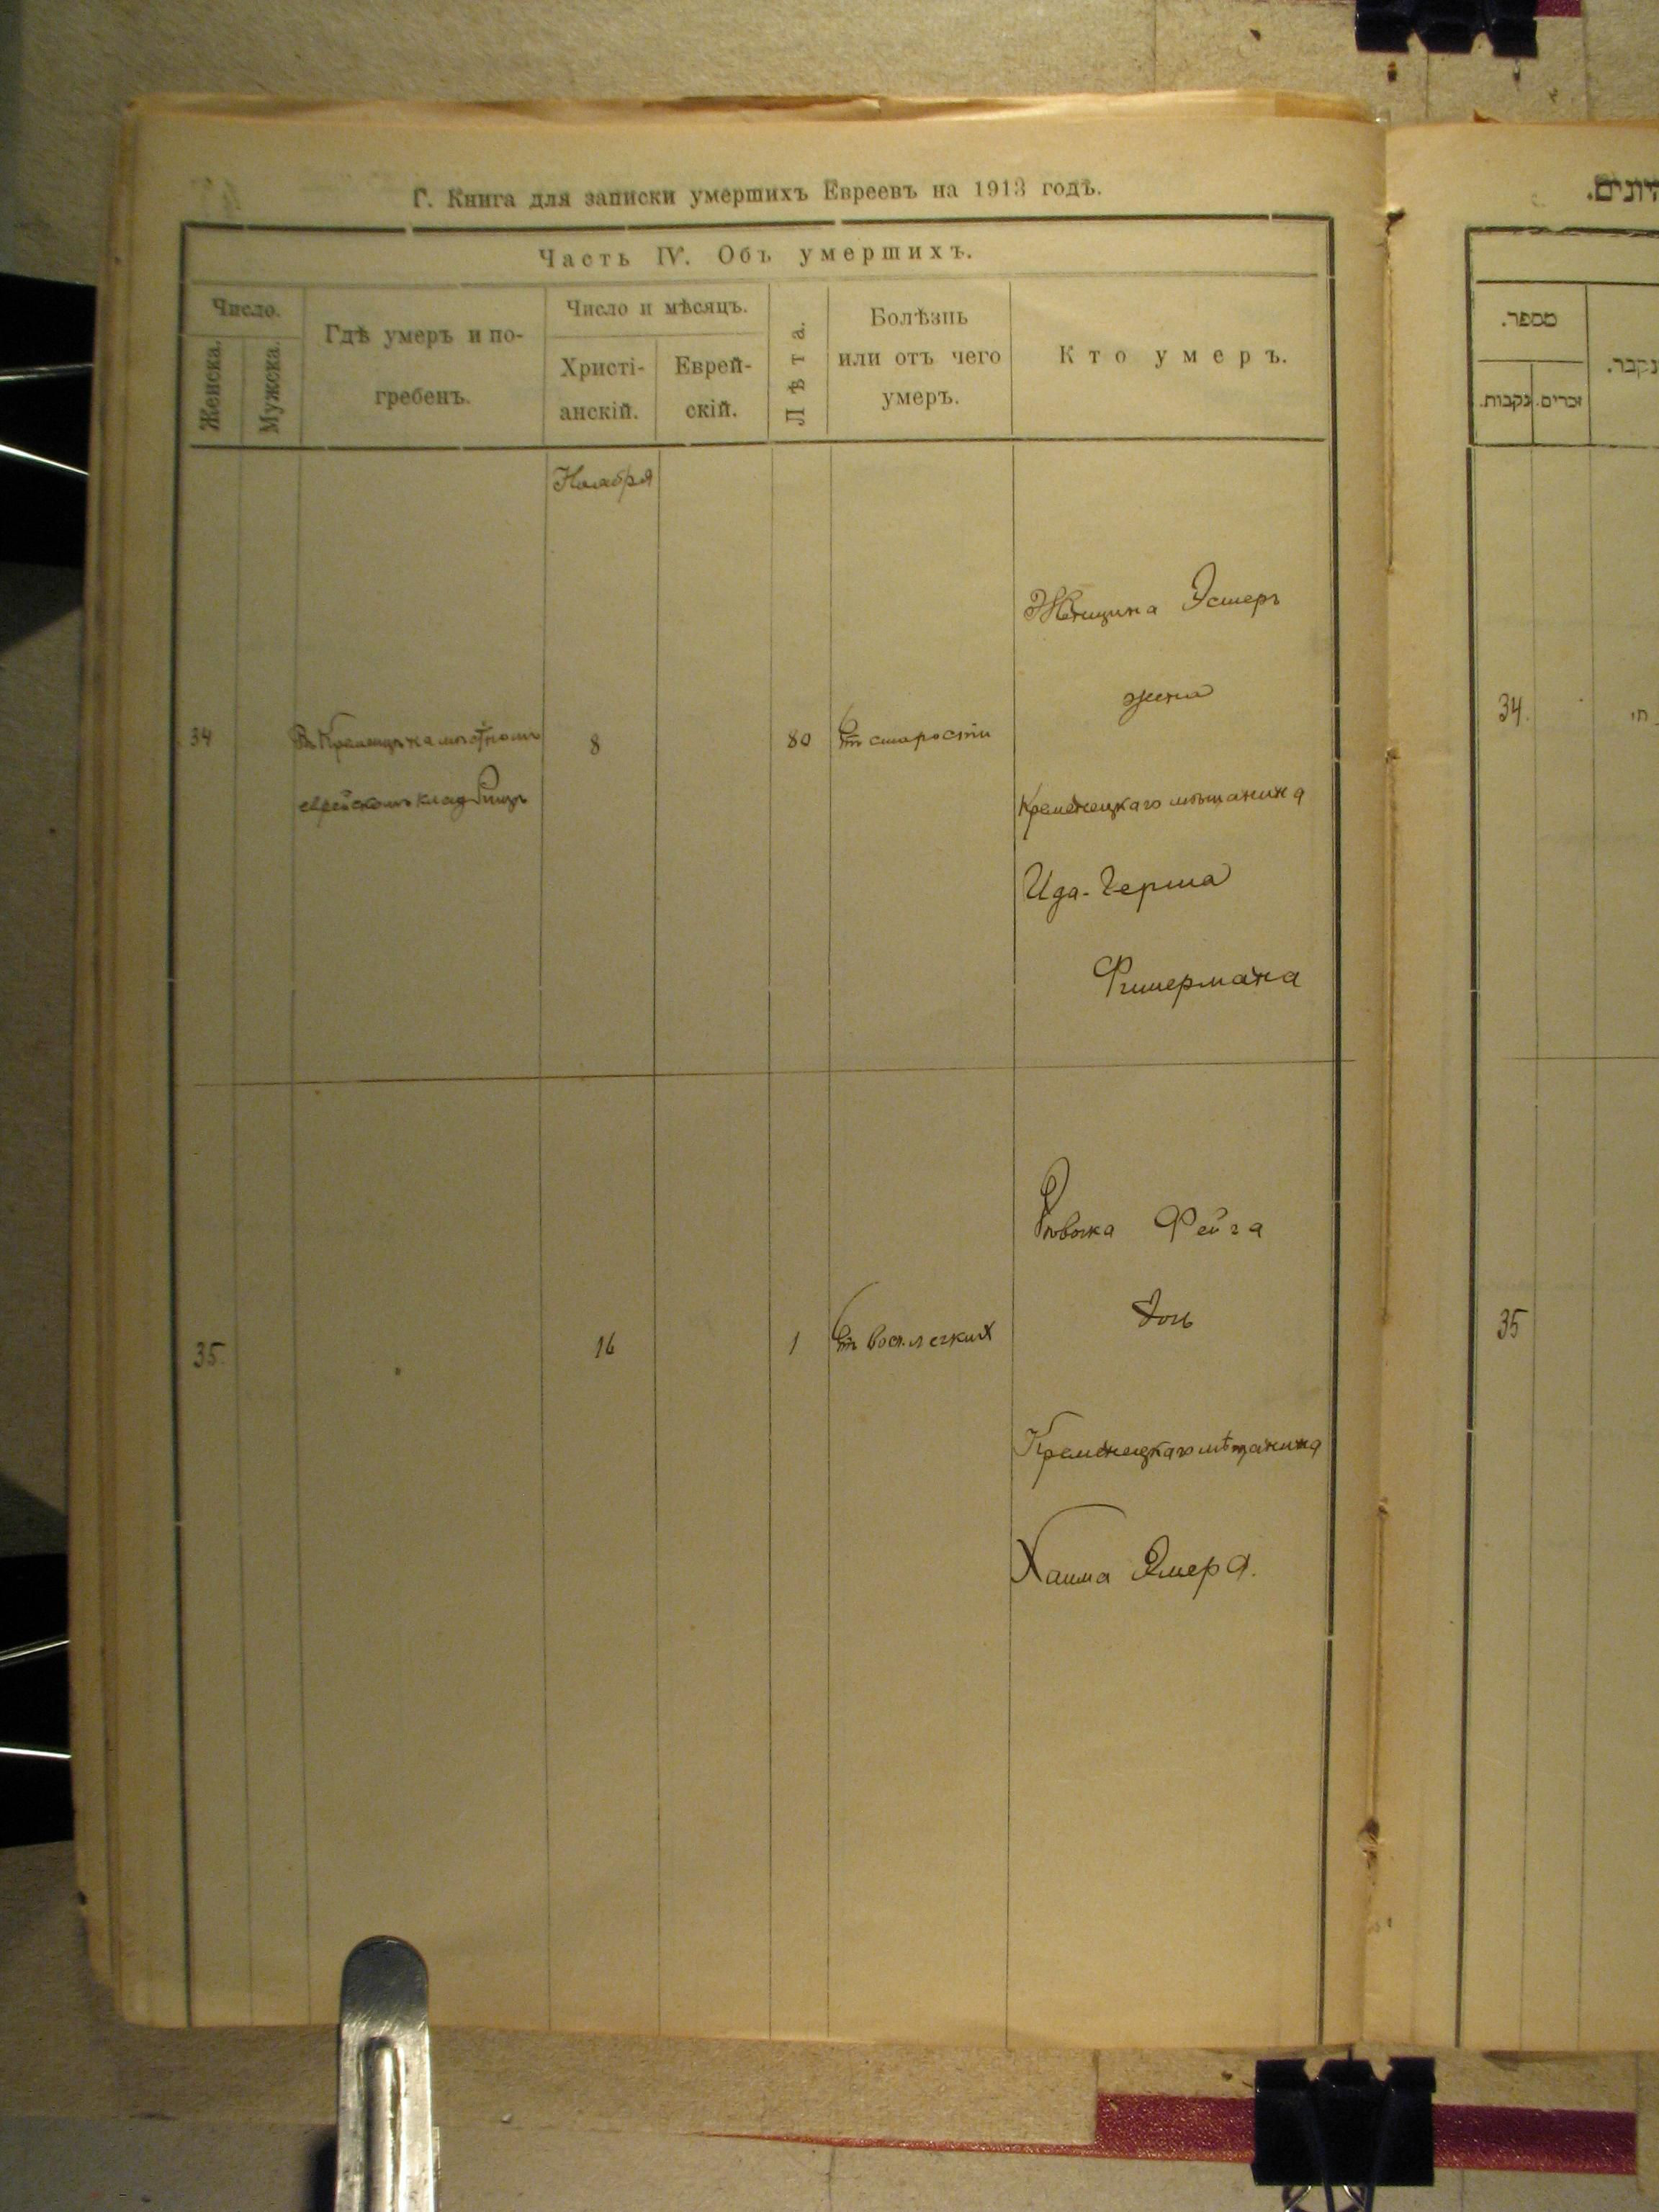 Г. Книга для записки умершихъ Евреевъ на 1913 годъ.
Часть IV. Объ умершихъ.
Число.
Женска.
Мужска.
Гдѣ умеръ и по-
гребенъ.
Число и мѣсяцъ.
Христі-
анскій.
Еврей-
скій.
Лѣта.
Болѣзнь
или отъ чего
умеръ.
Кто умеръ.
Ноября
34
Въ Кременцѣ на мѣстномъ
еврейскомъ кладбищѣ
8
80
От старости
Женщина Эстеръ
жена
Кременецкаго мѣщанина
Ида-Герша
Фишермана
35
16
1
От восп. легких
Ривка Фейга
дочь
Кременецкаго мѣщанина
Хаима
מספר.
נקבות.
זכרים.
נקבר.
34.
35